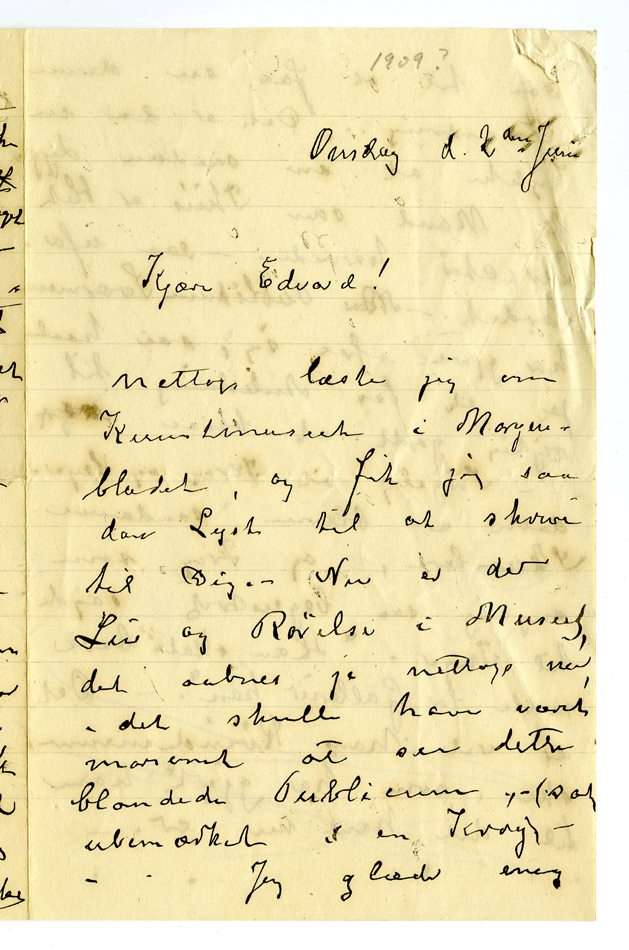 1909?
Onsdag d. 2den Juni
Kjære Edvard!
Nettop læste jeg om
Kunstmuseet i Morgen-
bladet, og fik jeg saa-
dan Lyst til at skrive
til Dig. - Nu er det
Liv og Rørelse i Museet,
det aabnes jo nettop nu,
- det skulle have været
morsomt at se dette
blandede Publicum, - (sat
ubemærket i en Krog) -
- - Jeg glæder meg